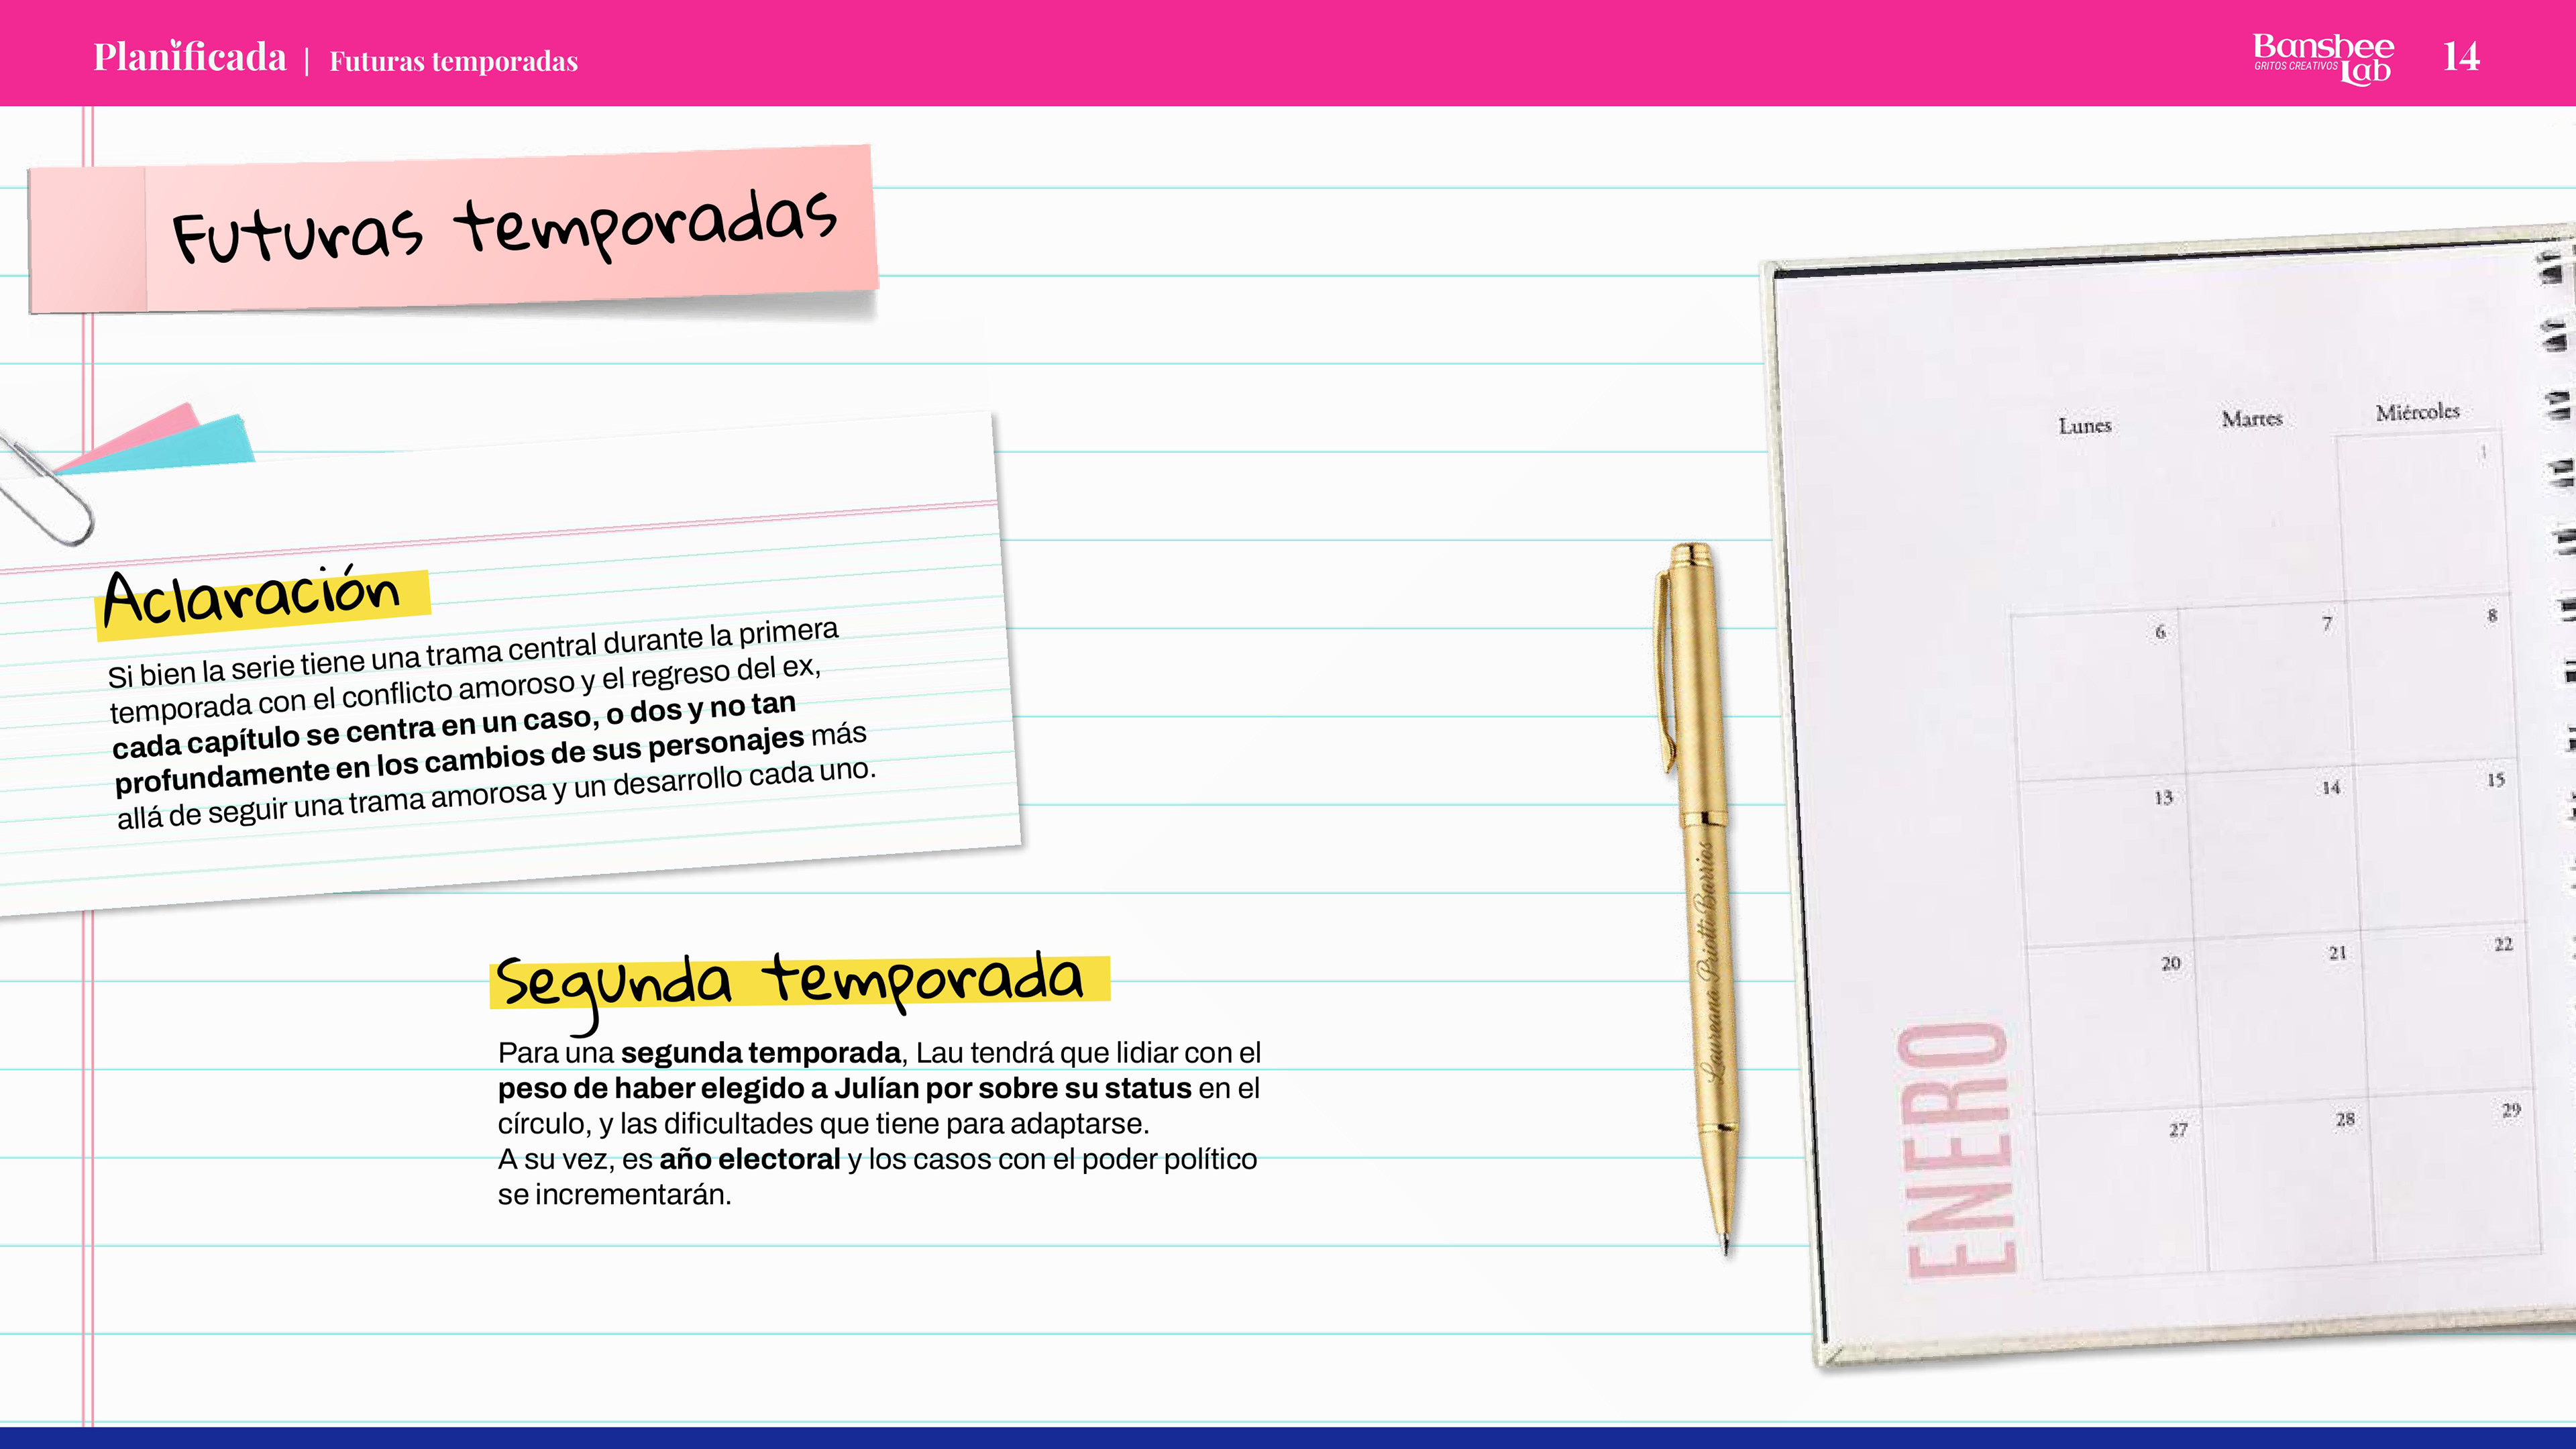 Planificada | Futuras temporadas
Banshee
GRITOS CREATIVOS Lab
14
Futuras temporadas
Aclaración
Si bien la serie tiene una trama central durante la primera
temporada con el conflicto amoroso y el regreso del ex,
cada capítulo se centra en un caso, o dos y no tan
profundamente en los cambios de sus personajes más
allá de seguir una trama amorosa y un desarrollo cada uno.
Segunda temporada
Para una segunda temporada, Lau tendrá que lidiar con el
peso de haber elegido a Julían por sobre su status en el
círculo, y las dificultades que tiene para adaptarse.
A su vez, es año electoral y los casos con el poder político
se incrementarán.
Laureana Priotti Barrios
ENERO
Lunes Martes Miércoles
1
6 7 8
13 14 15
20 21 22
27 28 29